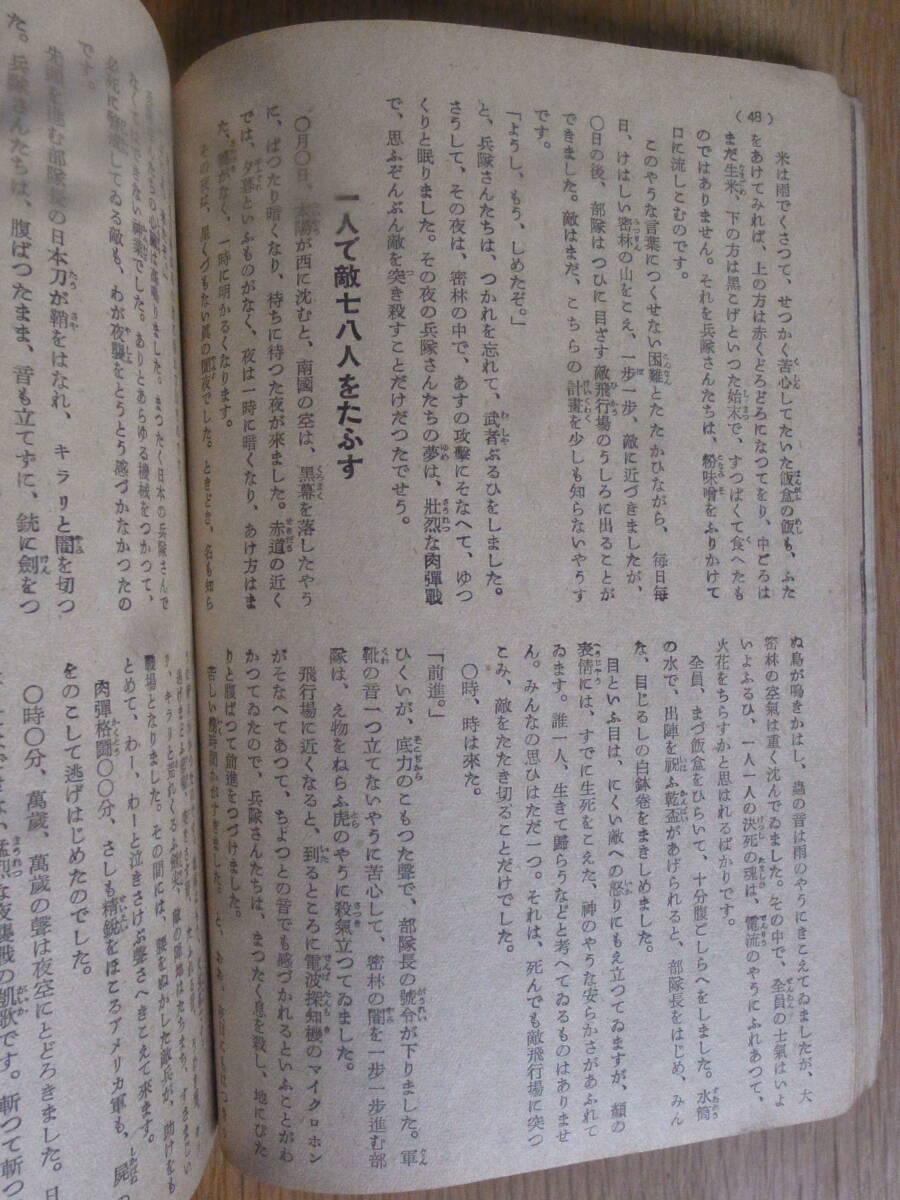 (48)
米は雨でくさつて、せつかく苦心してたいた飯盒の飯も、ふた
をあけてみれば、上の方は赤くどろどろになつてをり、中ごろは
まだ生米、下の方は黒こげといつた始末で、すつぱくて食へたも
のではありません。それを兵隊さんたちは、粉味噌をふりかけて
口に流しこむのです。
このやうな言葉につくせない困難とたたかひながら、毎日毎
日、けはしい密林の山をこえ、一歩一歩、敵に近づきましたが、
〇日の後、部隊はつひに目ざす敵飛行場のうしろに出ることが
できました。敵はまだ、こちらの計畫を少しも知らないやうす
です。
「ようし、もう、しめたぞ。」
と、兵隊さんたちは、つかれを忘れて、武者ぶるひをしました。
さうして、その夜は、密林の中で、あすの攻撃にそなへて、ゆつ
くりと眠りました。その夜の兵隊さんたちの夢は、壯烈な肉彈戰
で、思ふぞんぶん敵を突き殺すことだけだつたでせう。
一人て敵七八人をたふす
〇月〇日、太陽が西に沈むと、南國の空は、黑幕を落したやう
に、ぱつたり暗くなり、待ちに待つた夜が來ました。赤道の近く
では、夕暮といふものがなく、夜は一時に暗くなり、あけ方はま
た、曙がなく、一時に明かるくなります。
その夜は、星くづもない眞の闇夜でした。ときどき、名も知ら
ぬ鳥が鳴きかはし、蟲の音は雨のやうにきこえてゐましたが、大
密林の空氣は重く沈んでゐました。その中で、全員の士氣はいよ
いよふるひ、一人一人の決死の魂は、電流のやうにふれあつて、
火花をちらすかと思はれるばかりです。
全員、まづ飯盒をひらいて、十分腹ごしらへをしました。水筒
の水で、出陣を祝ふ乾盃があげられると、部隊長をはじめ、みん
な、目じるしの白鉢卷をまきしめました。
目といふ目は、にくい敵への怒りにもえ立つてゐますが、顔の
表情には、すでに生死をこえた、神のやうな安らかさがあふれて
ゐます。誰一人、生きて歸らうなどと考へてゐるものはありませ
ん。みんなの思ひはただ一つ。それは、死んでも敵飛行場に突つ
こみ、敵をたたき切ることだけでした。
〇時、時は來た。
「前進。」
ひくいが、底力のこもつた聲で、部隊長の號令が下りました。軍
靴の音一つ立てないやうに苦心して、密林の闇を一歩一歩進む部
隊は、え物をねらふ虎のやうに殺氣立つてゐました。
飛行場に近くなると、到るところに電波探知機のマイクロホン
がそなへてあつて、ちよつとの音でも感づかれるといふことがわ
かつてゐたので、兵隊さんたちは、まつたく息を殺し、地にぴた
りと腹ばつて前進をつづけました。
苦しい幾時間かがすぎました。
なくてはできない神業でした。ありとあらゆる機械をつかつて、
必死に警戒してゐる敵も、わが夜襲をとうとう感づかなかつたの
です。
先頭を進む部隊長の日本刀が鞘をはなれ、キラリと闇を切つ
た。兵隊さんたちは、腹ばつたまま、音も立てずに、銃に劍をつ
戰場となりました。その間には、腰をぬかした敵兵が、助けをも
とめて、わー、わーと泣きさけぶ聲さへきこえて來ます。
肉彈格鬪〇〇分、さしも精鋭をほこるアメリカ軍も、屍
をのこして逃げはじめたのでした。
〇時〇分、萬歲、萬歲の聲は夜空にとどろきました。
な夜襲戰の凱歌です。斬つて斬つ